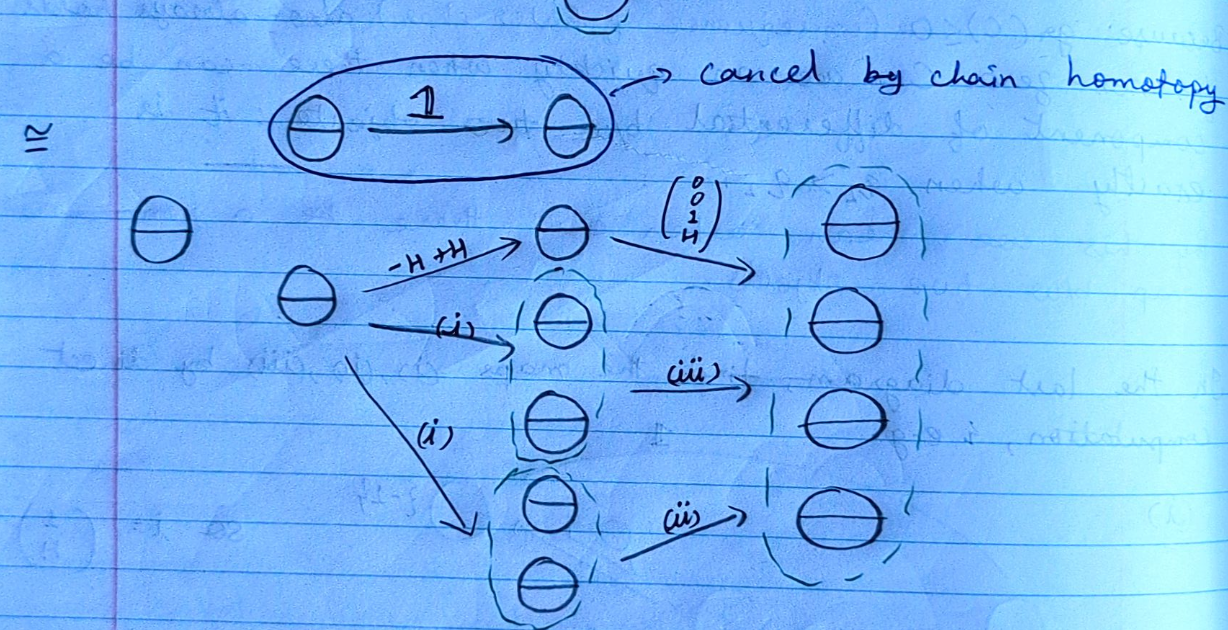 𝟙 → cancel by chain homotopy
≅
(0 0 1 H)
-H+H
(i)
(iii)
(i)
(ii)